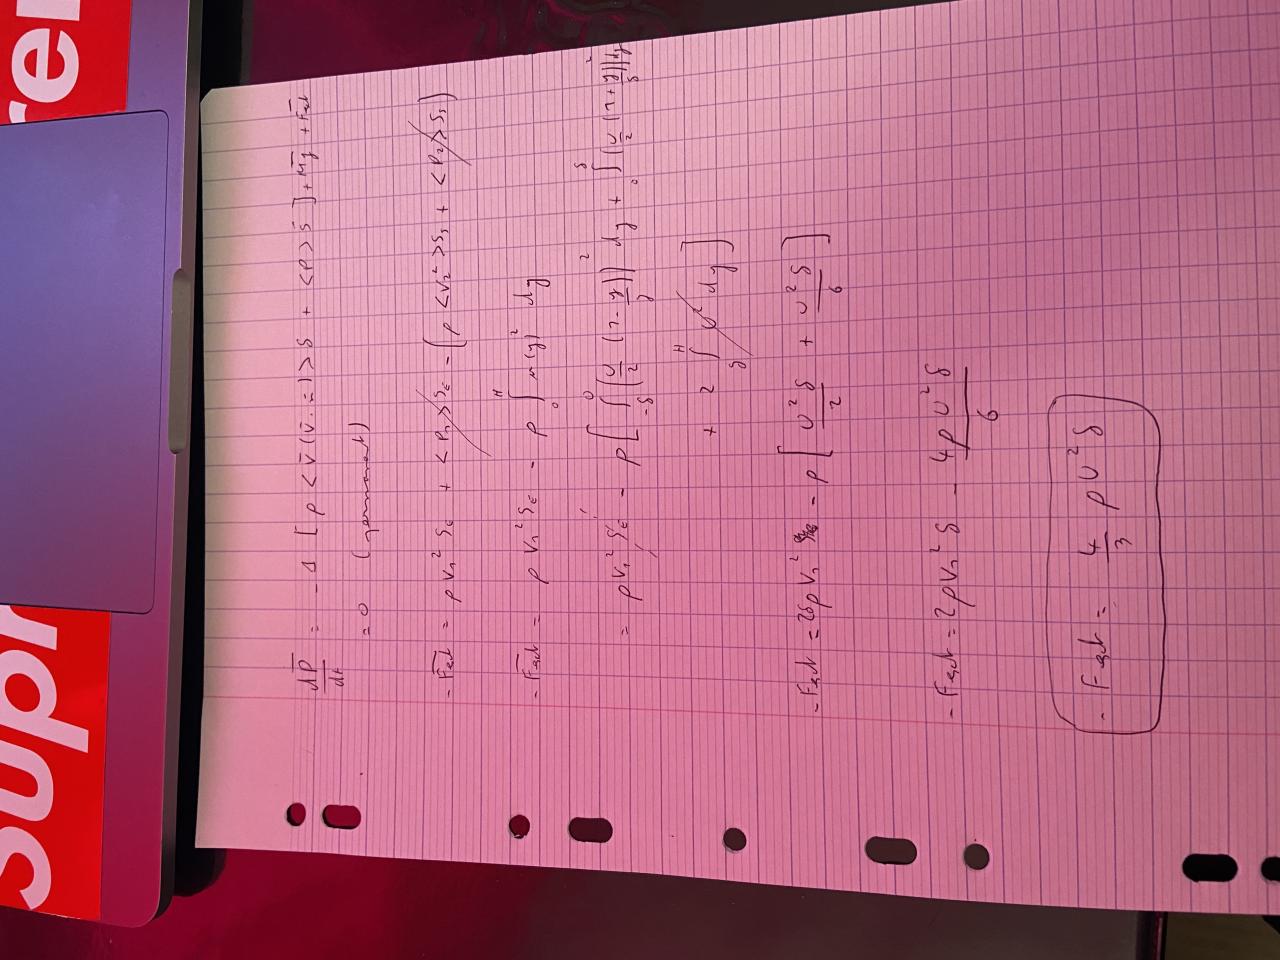 dP̄/dt = - Δ [ρ <v̄(v̄.n̄)>S + <P>S̄] + Mḡ + F̄ext
= 0 (permanent)
- F̄ext = ρ V₁² Sₑ + <P₁>Sₑ - (ρ <V₂²>Sₛ + <P₂>Sₛ)
- F̄ext = ρ V₁² Sₑ - ρ ∫₀ᴴ u(y)² dy
= ρ V₁² Sₑ - ρ [ ∫₋δ⁰ (U/2 (1 - y/δ))² dy + ∫₀^δ (U/2 (1 + y/δ))² dy
+ 2 ∫δᴴ U² dy ]
- Fext = 2δρ V₁² - ρ [ U²δ/2 + U²δ/6 ]
- Fext = 2ρV₁² δ - 4ρU²δ/6
- Fext = 4/3 ρU²δ
Supr
re